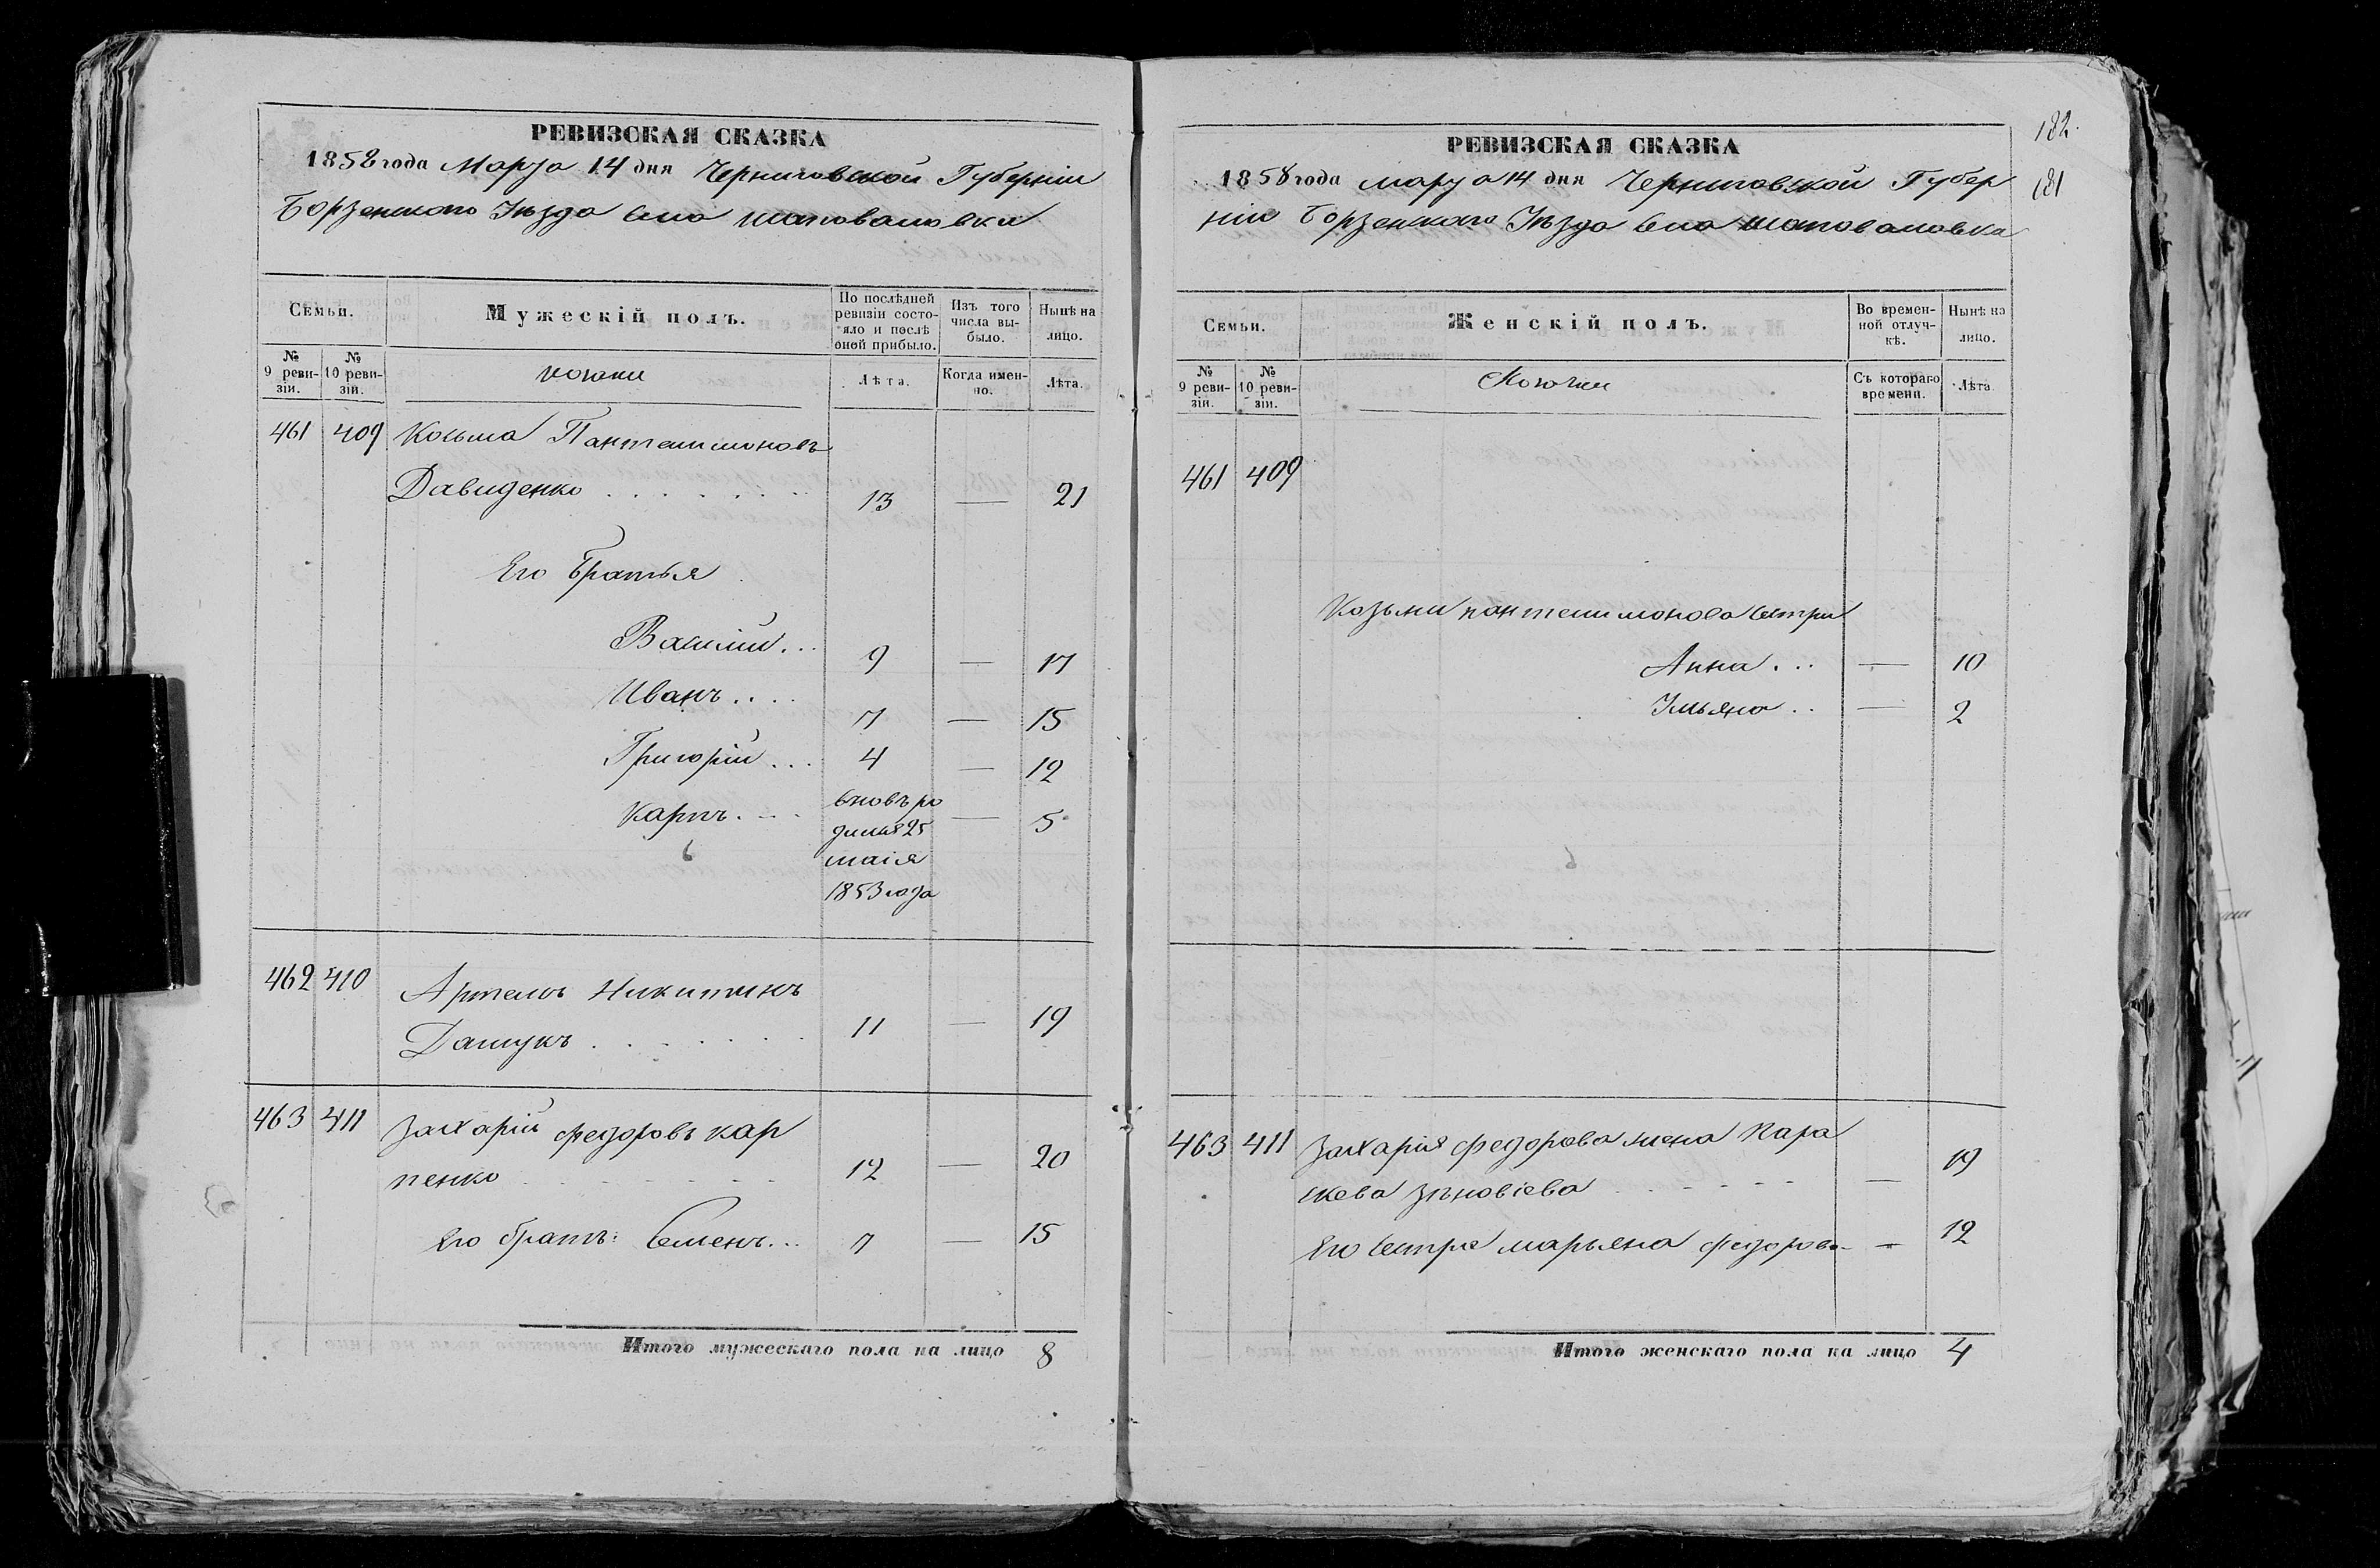 РЕВИЗСКАЯ СКАЗКА
1858 года Марта 14 дня Черниговской Губерніи
Борзенского Уѣзда Села Шаповаловки
Семьи.
Мужескій полъ.
По послѣдней ревизіи состояло и послѣ оной прибыло.
Изъ того числа выбыло.
Нынѣ на лицо.
№ 9 ревизіи.
№ 10 ревизіи.
Козаки
Лѣта.
Когда именно.
Лѣта.
461 409 Козьма Пантелимоновъ
Давиденко 13 — 21
Его Братья
Василий 9 — 17
Иванъ 7 — 15
Григорій 4 — 12
Карпъ вновь ро — 5
дился 25
маія
1853 года
6
462 410 Артемъ Никитинъ
Дашукъ 11 — 19
463 411 Захарій Федоровъ Кар
пенко 12 — 20
Его братъ: Семенъ 7 — 15
Итого мужескаго пола на лицо 8
182.
181
РЕВИЗСКАЯ СКАЗКА
1858 года Марта 14 дня Черниговской Губер
ніи Борзенского Уѣзда Села Шаповаловка
Семьи.
Женскій полъ.
Во временной отлучкѣ.
Нынѣ на лицо.
№ 9 ревизіи.
№ 10 ревизіи.
Козачки
Съ котораго времени.
Лѣта.
461 409
Козьми Пантелимонова сестри
Анна — 10
Ульяна — 2
6
463 411 Захарія Федорова жена Пара
скева Зѣновіева — 19
Его Сестра Марьяна Федорова — 12
Итого женскаго пола на лицо 4